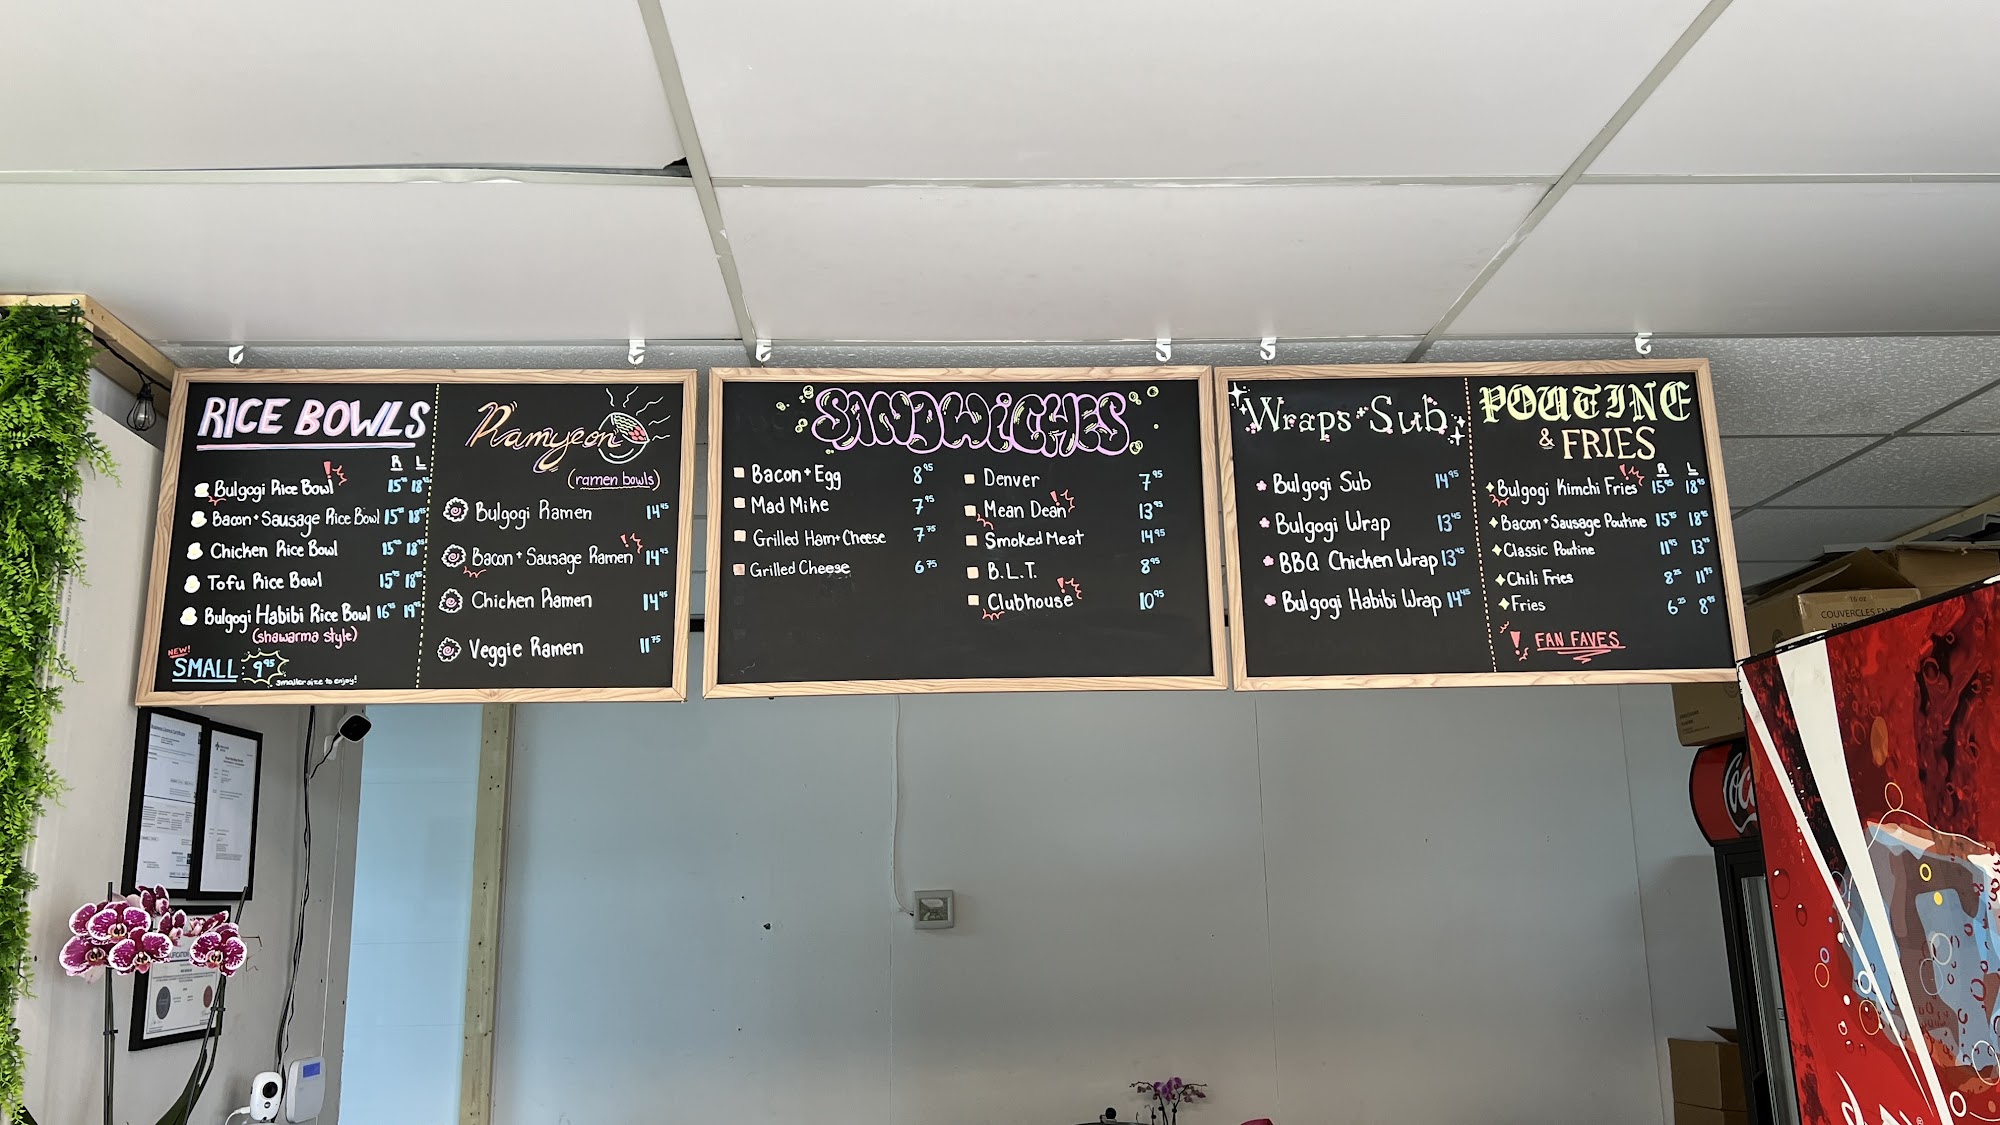 RICE BOWLS
R L
Bulgogi Rice Bowl 15⁴⁵ 18⁴⁵
Bacon + Sausage Rice Bowl 15⁴⁵ 18⁴⁵
Chicken Rice Bowl 15⁴⁵ 18⁴⁵
Tofu Rice Bowl 15⁴⁵ 18⁴⁵
Bulgogi Habibi Rice Bowl 16⁴⁵ 19⁴⁵
(shawarma style)
NEW!
SMALL 9⁹⁵
smaller size to enjoy!
Ramyeon
(ramen bowls)
Bulgogi Ramen 14⁴⁵
Bacon + Sausage Ramen 14⁴⁵
Chicken Ramen 14⁴⁵
Veggie Ramen 11⁷⁵
SANDWICHES
Bacon + Egg 8⁹⁵
Mad Mike 7⁹⁵
Grilled Ham + Cheese 7⁷⁵
Grilled Cheese 6⁷⁵
Denver 7⁹⁵
Mean Dean 13⁹⁵
Smoked Meat 14⁹⁵
B.L.T. 8⁹⁵
Clubhouse 10⁹⁵
Wraps + Sub
Bulgogi Sub 14⁹⁵
Bulgogi Wrap 13⁴⁵
BBQ Chicken Wrap 13⁴⁵
Bulgogi Habibi Wrap 14⁴⁵
POUTINE
& FRIES
R L
Bulgogi Kimchi Fries 15⁹⁵ 18⁹⁵
Bacon + Sausage Poutine 15⁹⁵ 18⁹⁵
Classic Poutine 11⁹⁵ 13⁹⁵
Chili Fries 8²⁵ 11⁹⁵
Fries 6²⁵ 8⁹⁵
! FAN FAVES
16 oz